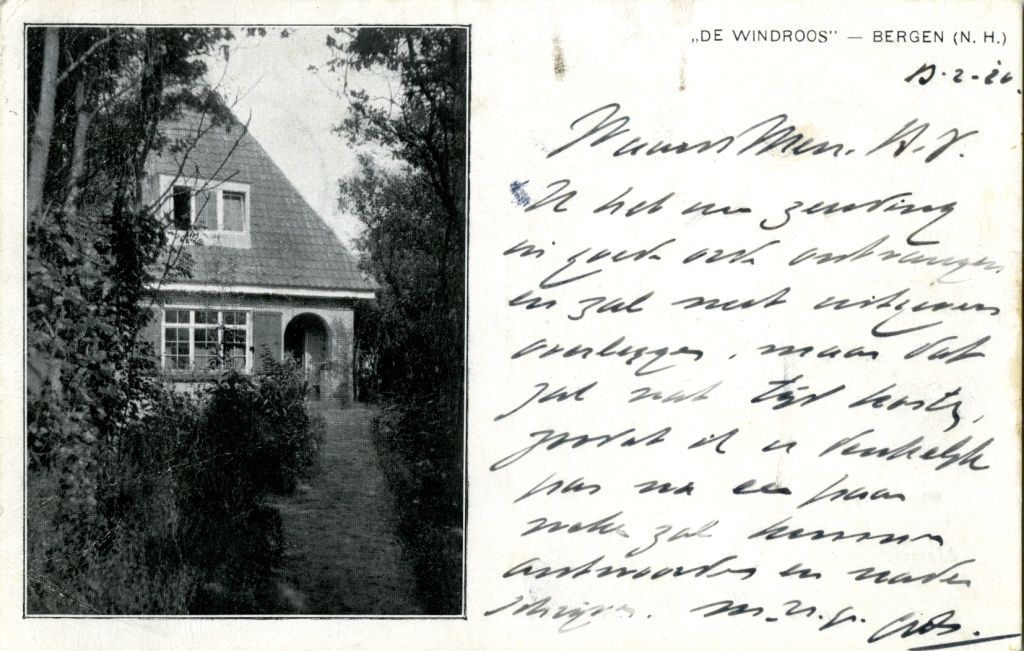 „DE WINDROOS” — BERGEN (N. H.)
Waarde Men. A. V.
Ik heb uw zending
in goede orde ontvangen
en zal met uitgevers
overleggen, maar dat
zal wat tijd kosten,
zoodat ik u denkelijk
pas na een paar
weken zal kunnen
antwoorden en nader
schrijven. m. v. gr.